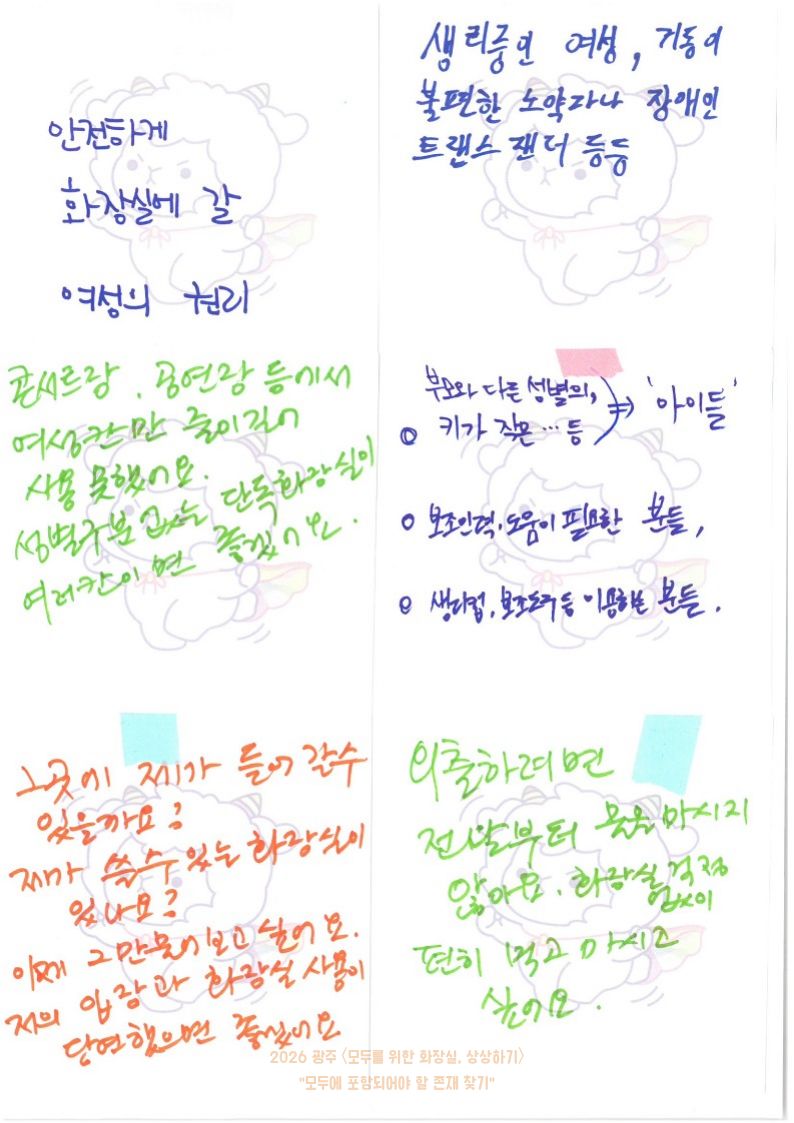 안전하게
화장실에 갈
여성의 권리
생리중인 여성, 거동이
불편한 노약자나 장애인
트랜스 잰더 등등
콘서트장, 공연장 등에서
여성칸만 줄이길어
사용 못했어요.
성별구분 없는 단독화장실이
여러칸이면 좋겠어요.
부모와 다른 성별의,
◎ 키가 작은 … 등 ⇒ '아이들'
○ 보조인력·도움이 필요한 분들,
◎ 생리컵, 보조도구 등 이용하는 분들.
그곳에 제가 들어 갈수
있을까요?
제가 쓸수 있는 화장실이
있나요?
이제 그만 물어보고 싶어요.
저의 입장과 화장실 사용이
당연했으면 좋겠어요
외출하려면
전날부터 물을 마시지
않아요. 화장실 걱정
없이
편히 먹고 마시고
싶어요.
2026 광주 〈모두를 위한 화장실, 상상하기〉
"모두에 포함되어야 할 존재 찾기"